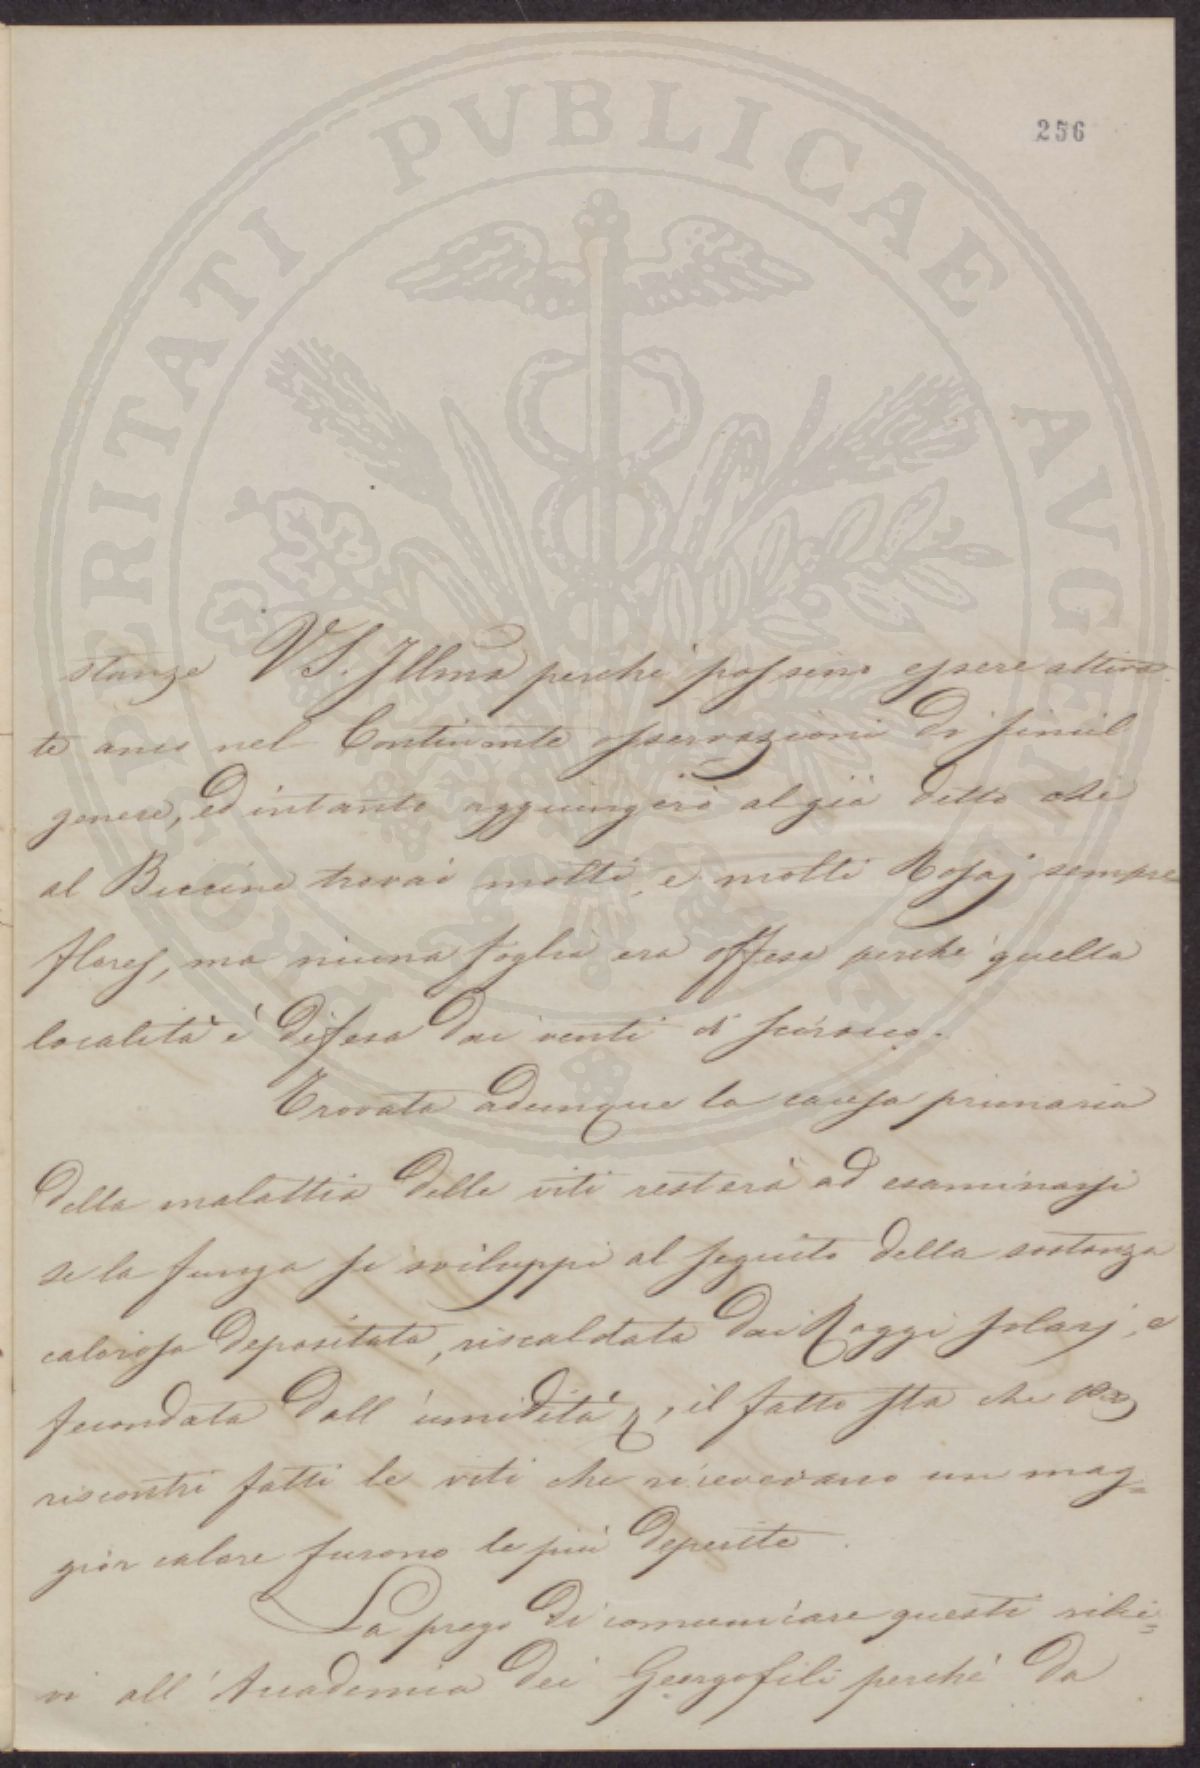 256
PROSPERITATI PVBLICAE AVGENDAE
stanze VS. Illma perchè possino essere attiva-
te anco nel Continente osservazioni di simil
genere, ed intanto aggiungerò al già detto che
al Biccino trovai molti, e molti Rosaj sempre
flores, ma niuna foglia era offesa perchè quella
località è difesa dai venti di scirocco.
Trovata adunque la causa primaria
della malattia delle viti resterà ad esaminarsi
se la funga si sviluppi al seguito della sostanza
calorosa depositata, riscaldata dai Raggi solarj, e
fecondata dall'umidità, il fatto sta che
riscontri fatti le viti che ricevevano un mag=
gior calore furono le più deperite.
La prego di comunicare questi rilie=
vi all'Accademia dei Georgofili perchè da